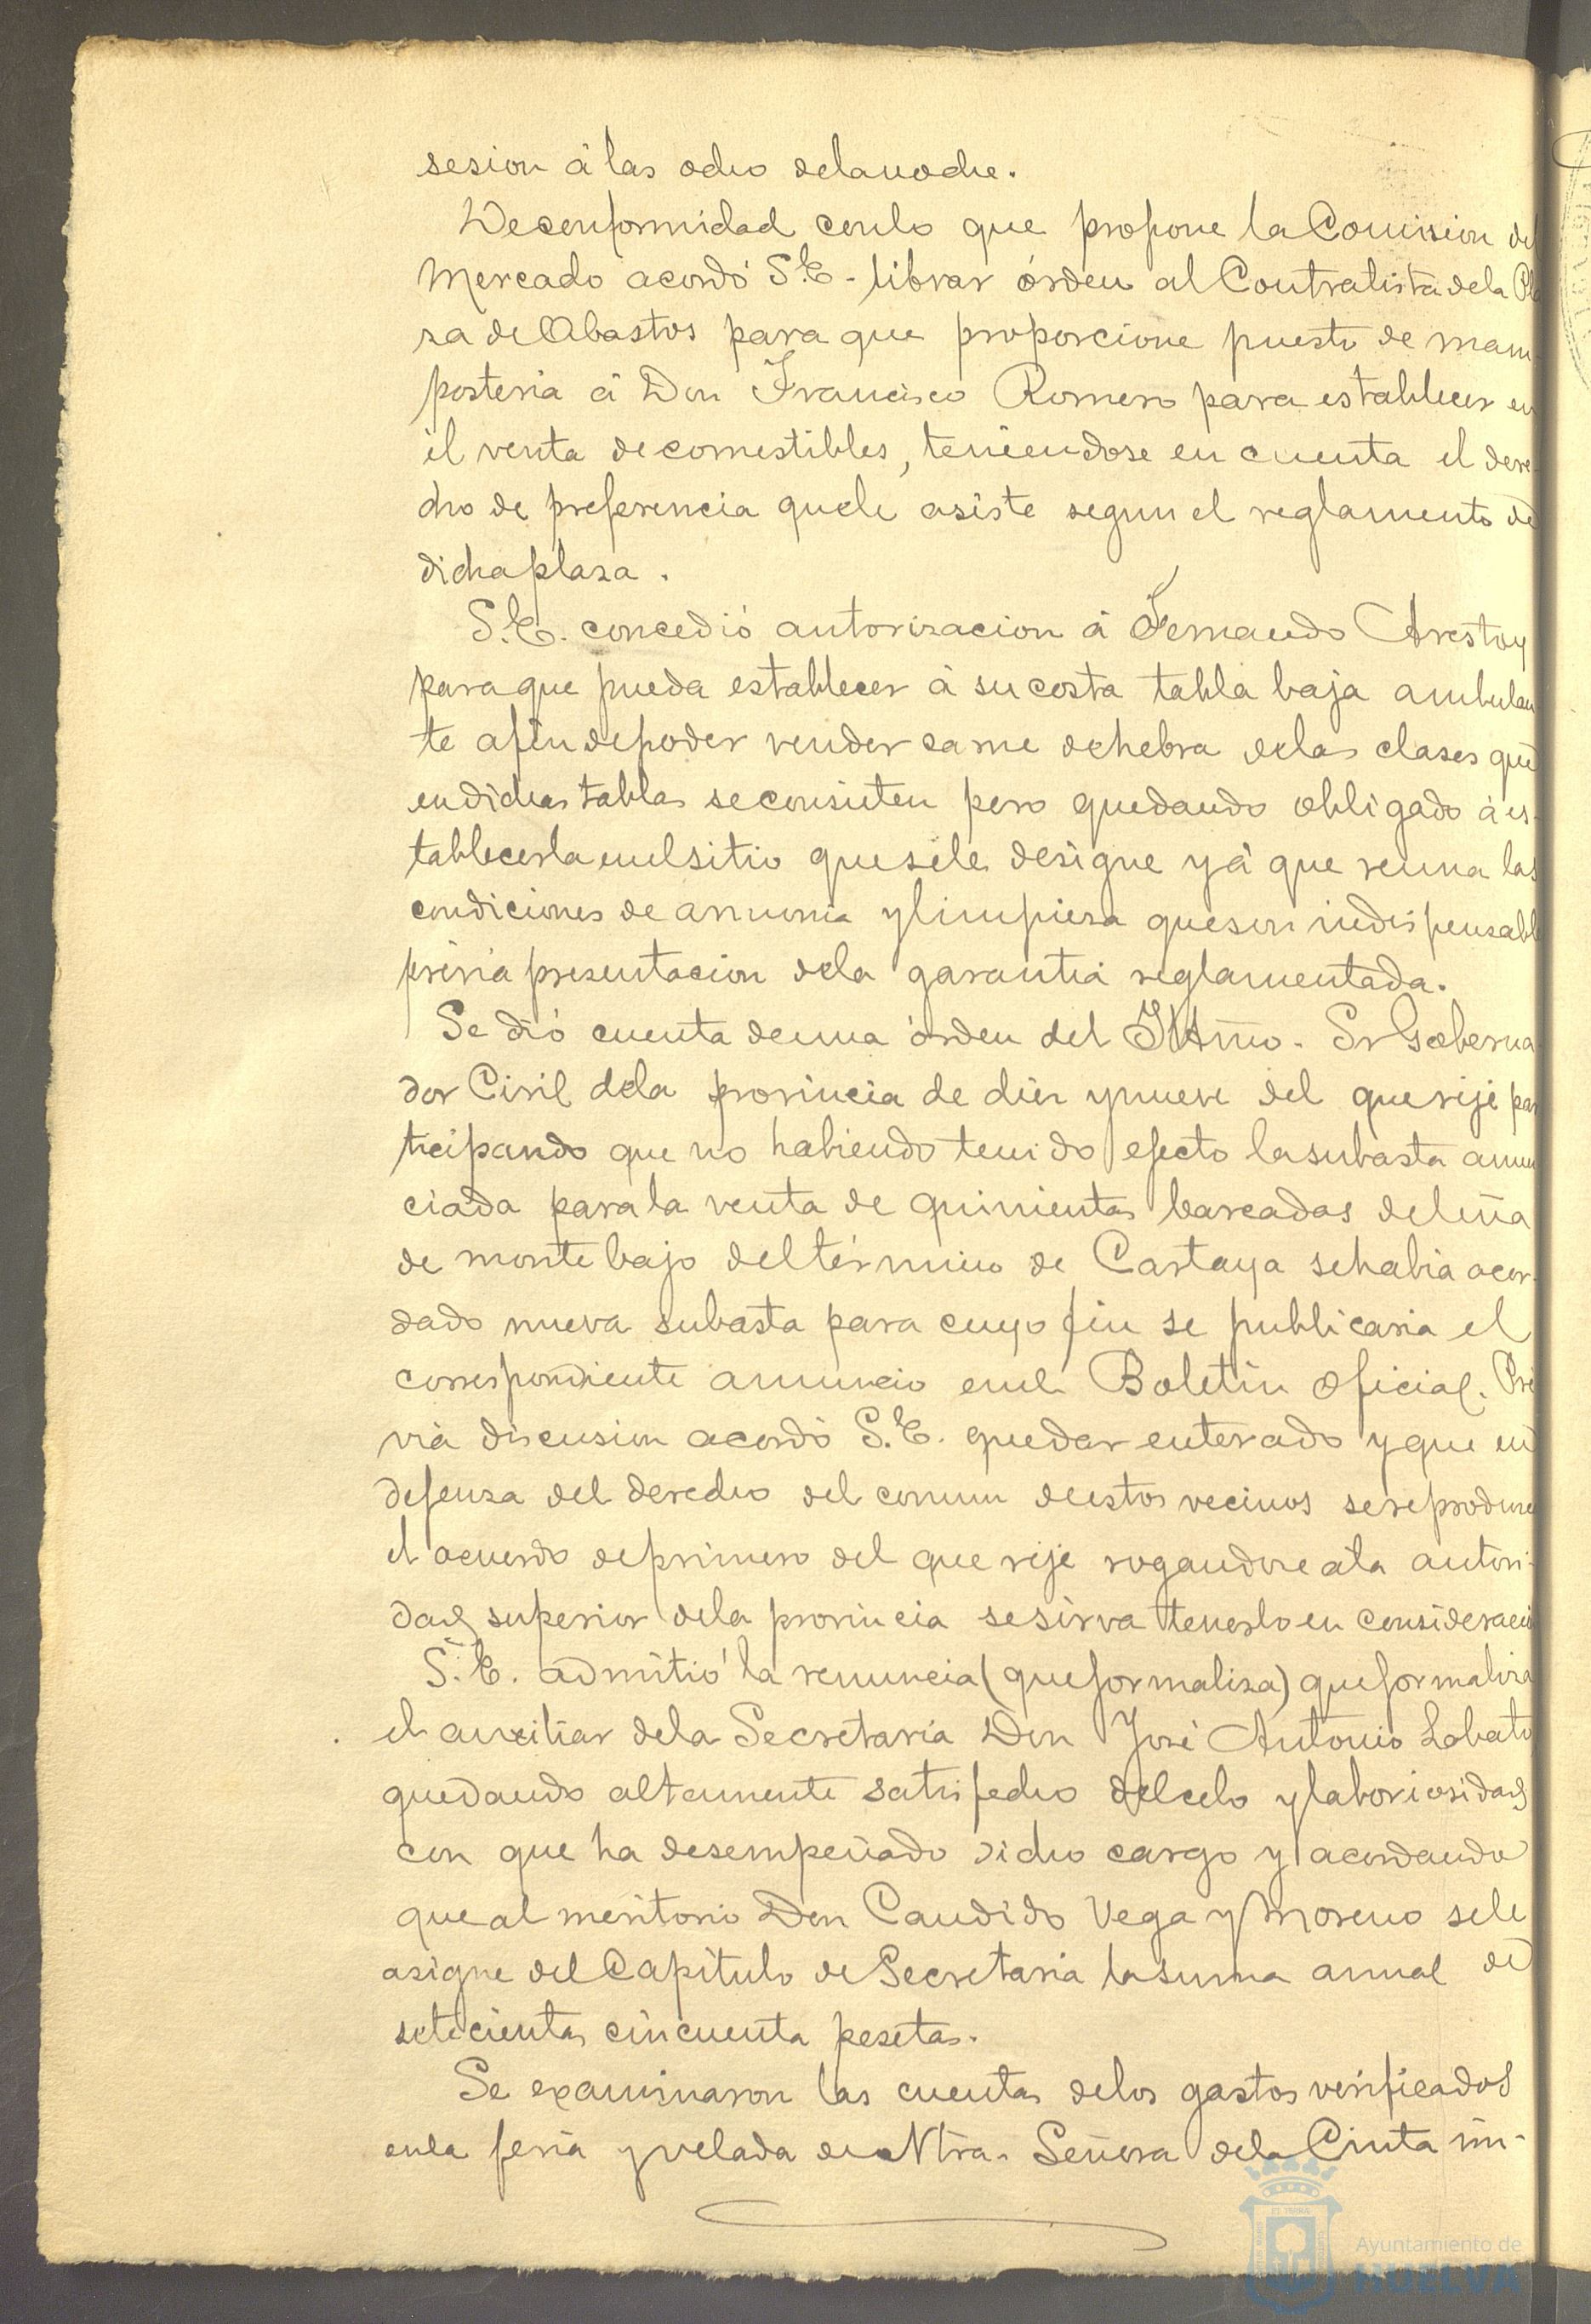 sesion á las ocho de la noche.
De conformidad con lo que propone la Comision del
Mercado acordó S.E. librar órden al Contratista de la Pla
za de Abastos para que proporcione puesto de mam
posteria á Don Francisco Romero para establecer en
él venta de comestibles, teniendose en cuenta el dere
cho de preferencia que le asiste segun el reglamento de
dicha plaza.
S.E. concedió autorizacion á Fernando Arestoy
para que pueda establecer á su costa tabla baja ambulan
te a fin de poder vender carne de hebra de las clases que
en dichas tablas se consienten pero quedando obligado á es-
tablecerla en el sitio que se le designe y á que reuna las
condiciones de armonia y limpieza que son indispensabl
prévia presentacion de la garantia reglamentada.
Se dió cuenta de una órden del Iltmo. Sr Goberna
dor Civil de la provincia de diez y nueve del que rije par
ticipando que no habiendo tenido efecto la subasta anun
ciada para la venta de quinientas barcadas de leña
de monte bajo del término de Cartaya se habia acor-
dado nueva subasta para cuyo fin se publicaria el
correspondiente anuncio en el Boletin oficial. Pré
via discusion acordó S.E. quedar enterado y que en
defensa del derecho del comun de estos vecinos se reproduzca
el acuerdo de primero del que rije rogandose a la autori-
dad superior de la provincia se sirva tenerlo en consideracio
S.E. admitió la renuncia (que formaliza) que formaliza
el auxiliar de la Secretaria Don José Antonio Lobato
quedando altamente satisfecho del celo y laboriosidad
con que ha desempeñado dicho cargo y acordando
que al meritorio Don Candido Vega y Moreno se le
asigne del Capítulo de Secretaria la suma anual de
setecientas cincuenta pesetas.
Se examinaron las cuentas de los gastos verificados
en la feria y velada de Ntra. Señora de la Cinta im-
Ayuntamiento de
HUELVA